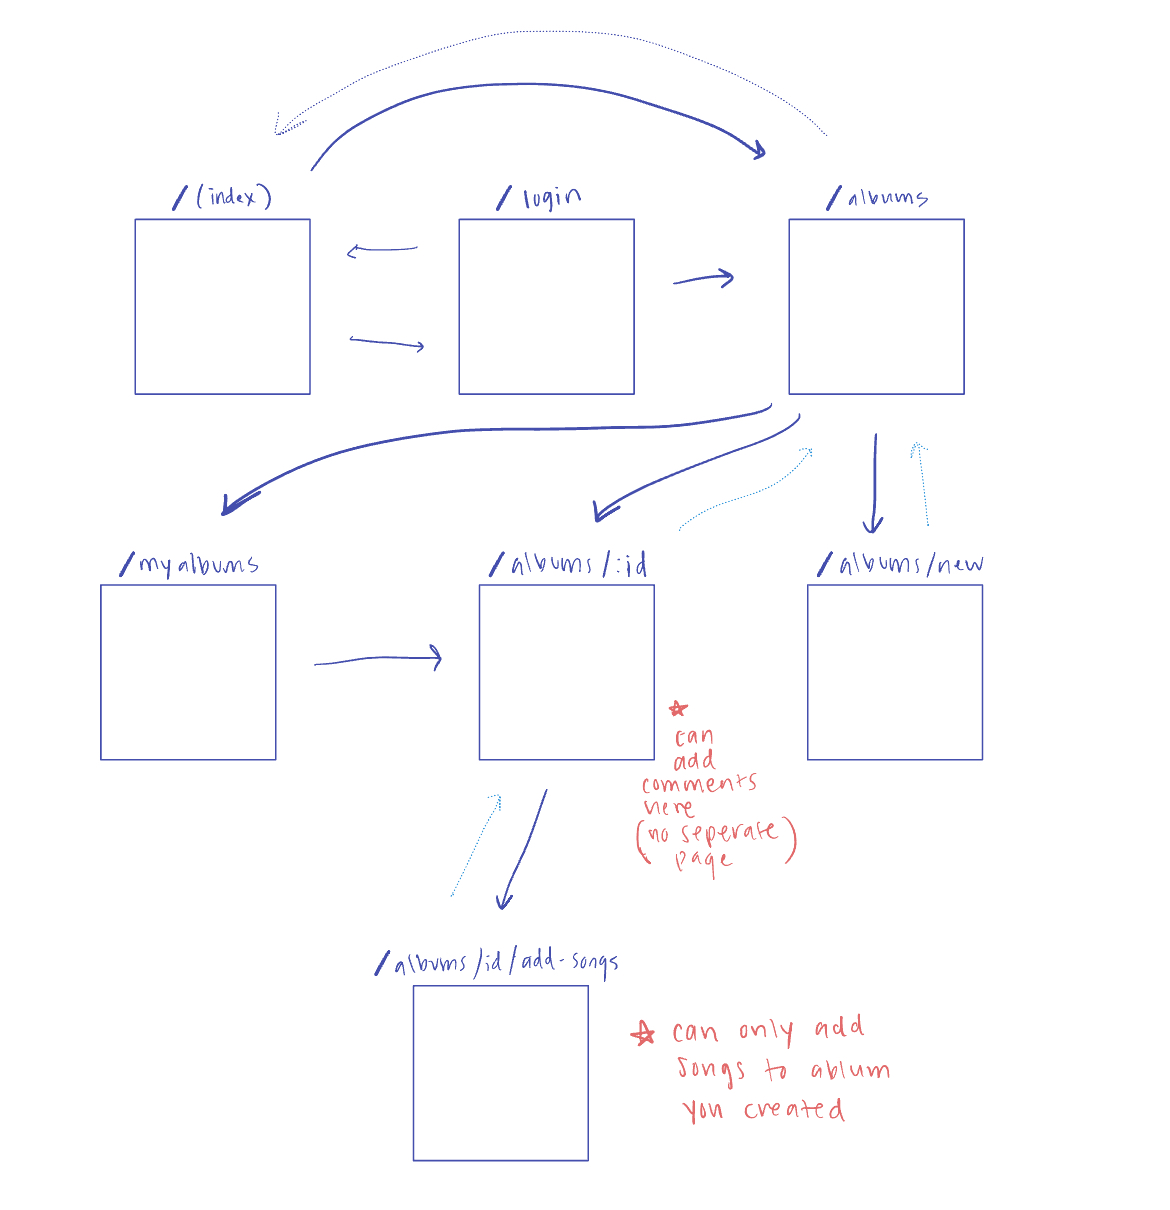 /(index)
/login
/albums
/myalbums
/albums/:id
/albums/new
can
add
comments
here
(no seperate
page)
/albums/id/add-songs
can only add
songs to ablum
you created